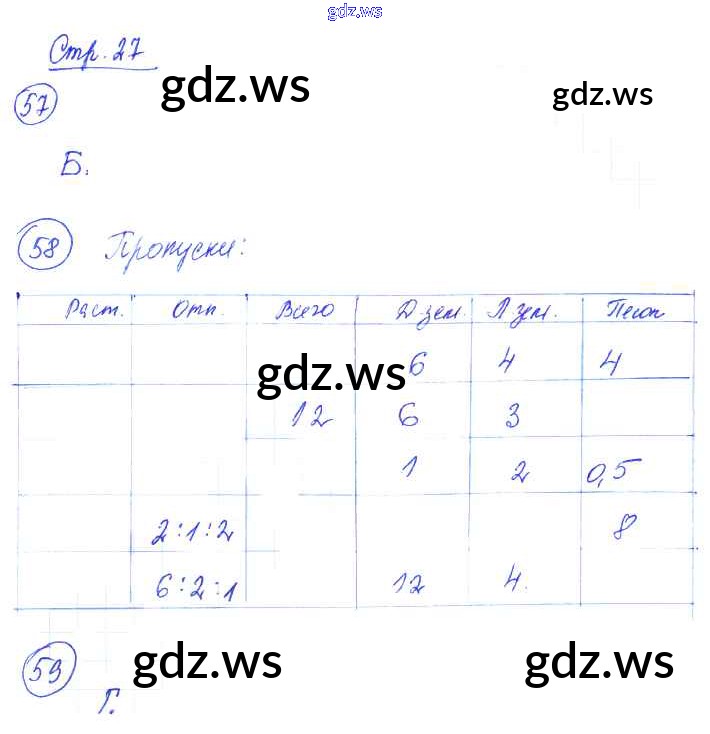 gdz.ws
Стр. 27
gdz.ws
gdz.ws
57
Б.
58 Пропуски:
Раст. Отн. Всего Д.зем. Л.зем. Песок
6 4 4
gdz.ws
12 6 3
1 2 0,5
2:1:2 8
6:2:1 12 4.
gdz.ws gdz.ws
59
Г.